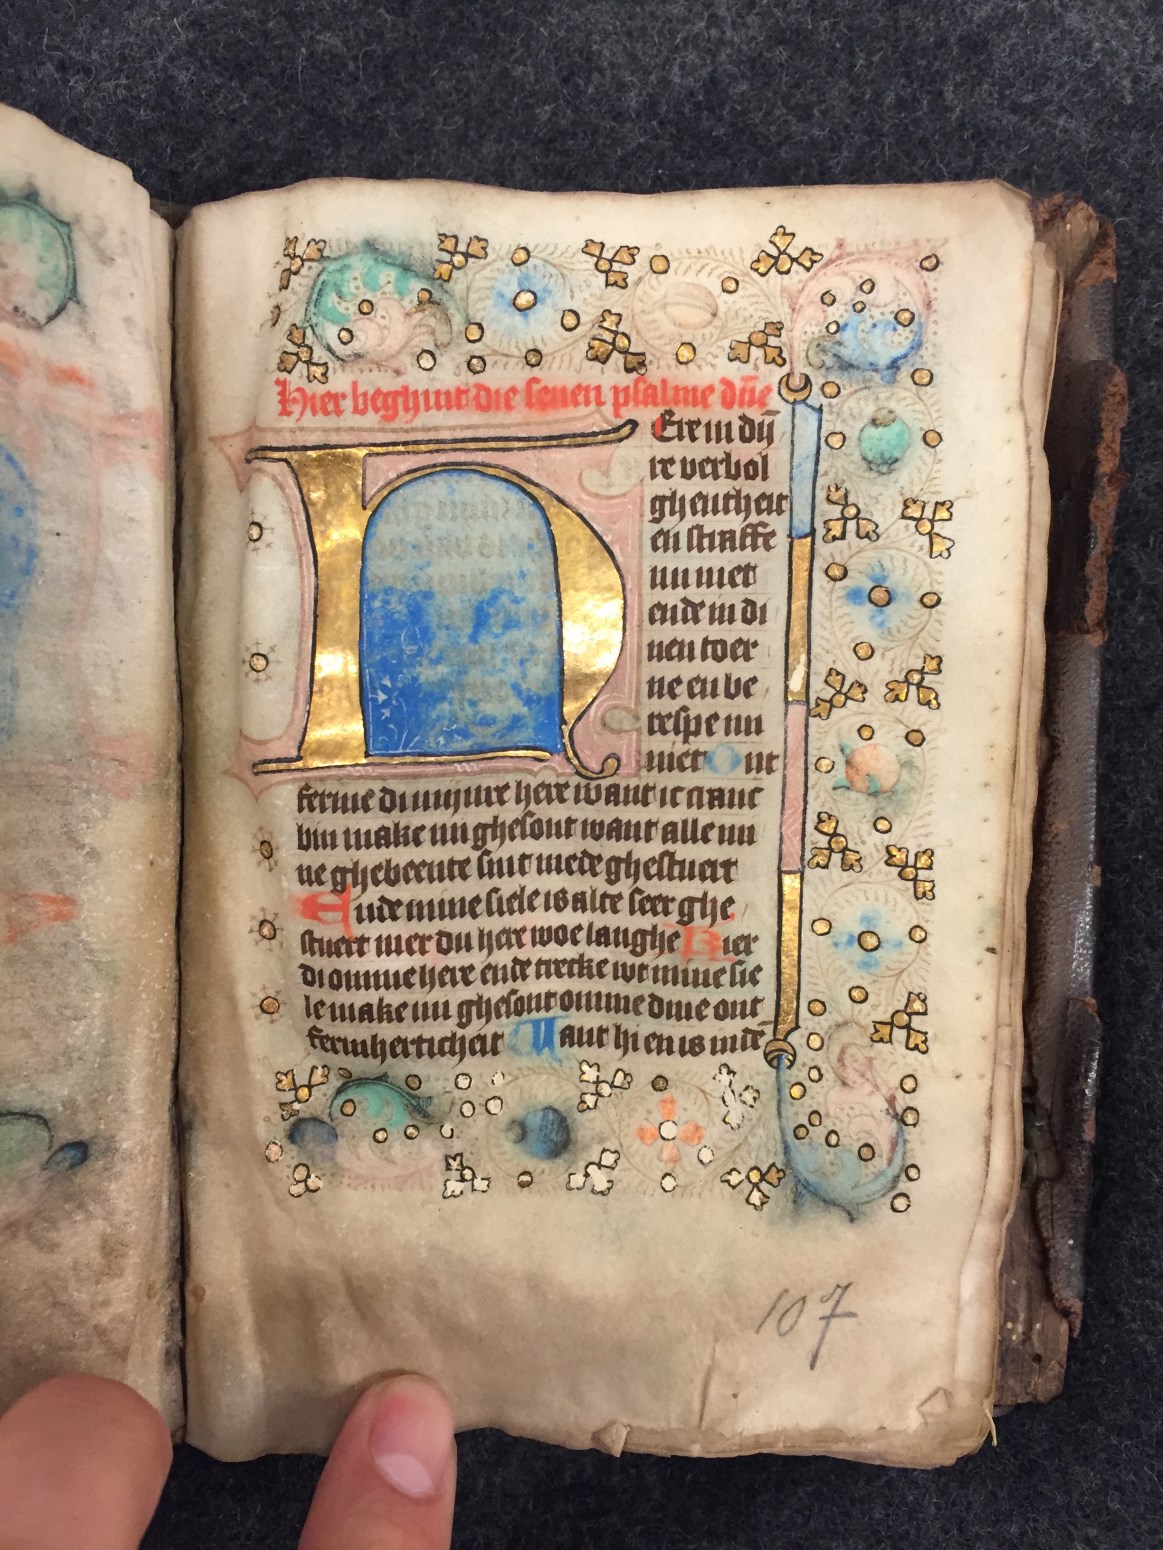 Hier beghint die seuen psalme dn̄e
HEre in dij
re verbol
ghentheit
en straffe
mi niet
ende in di
nen toer
ne en be
respe mi
niet Ont
ferme di mijnre here want ic cranc
bin make mi ghesont want alle mi
ne ghebeente sint mede ghestuert
Ende mine siele is alte seer ghe
stuert mer du here woe langhe Kier
di omme here ende trecke wt mine sie
le make mi ghesont omme dine ont
fermherticheit Want hi en is inde
107